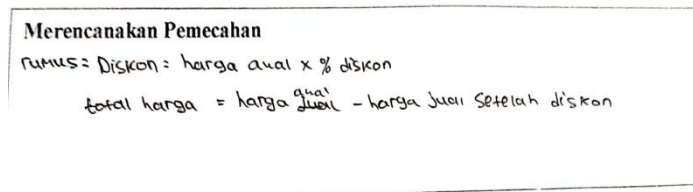 Merencanakan Pemecahan
rumus = Diskon = harga awal x % diskon
total harga = harga awal - harga jual setelah diskon